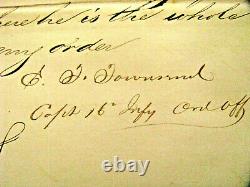 here he is the whole
my order
E. F. Townsend
Capt 16" Infy Ord Off